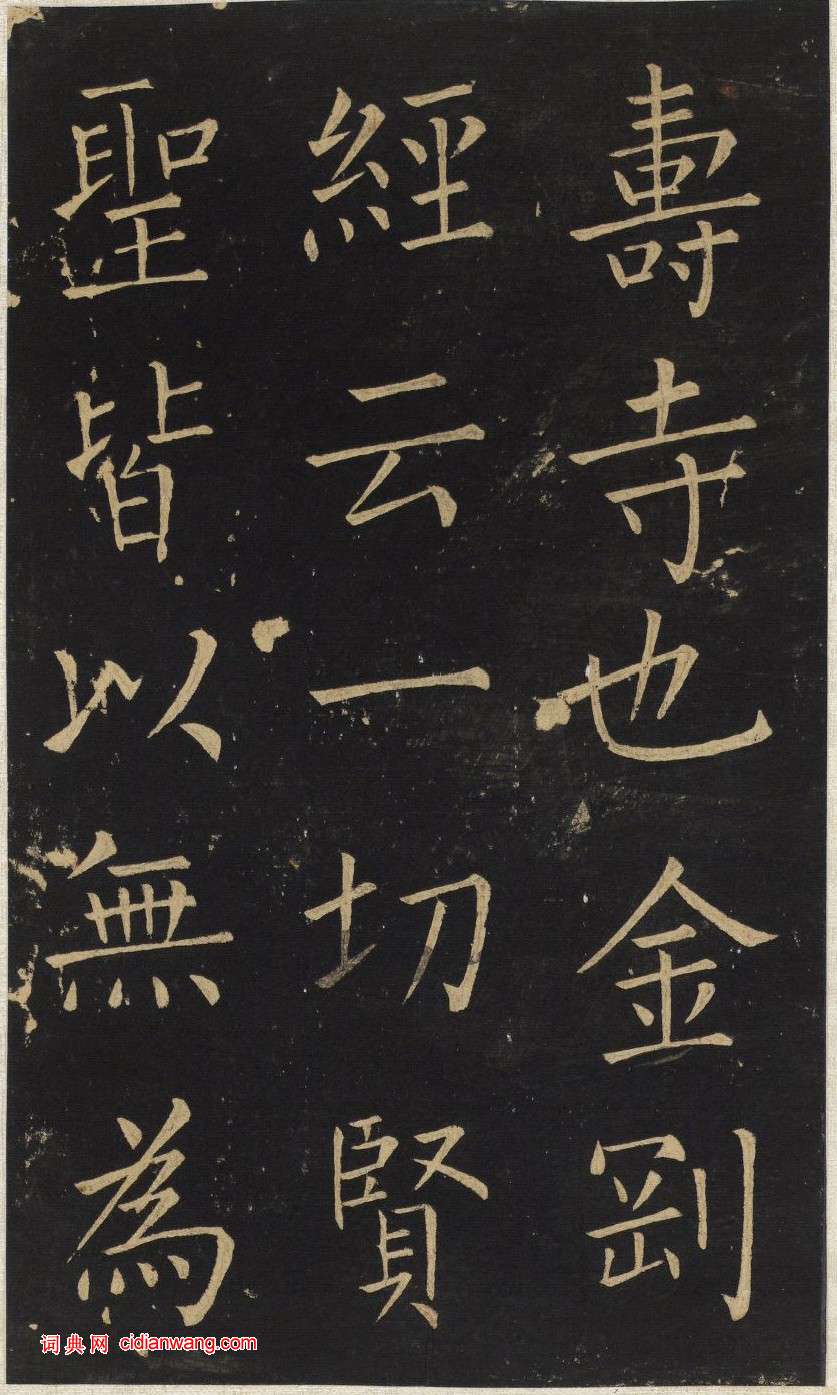 壽寺也金剛
經云一切賢
聖皆以無為
词典网 cidianwang.com